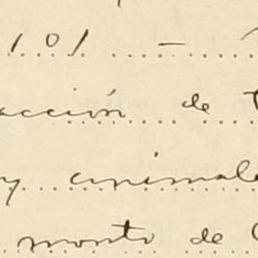 101 —
acción de
y animales
monto de